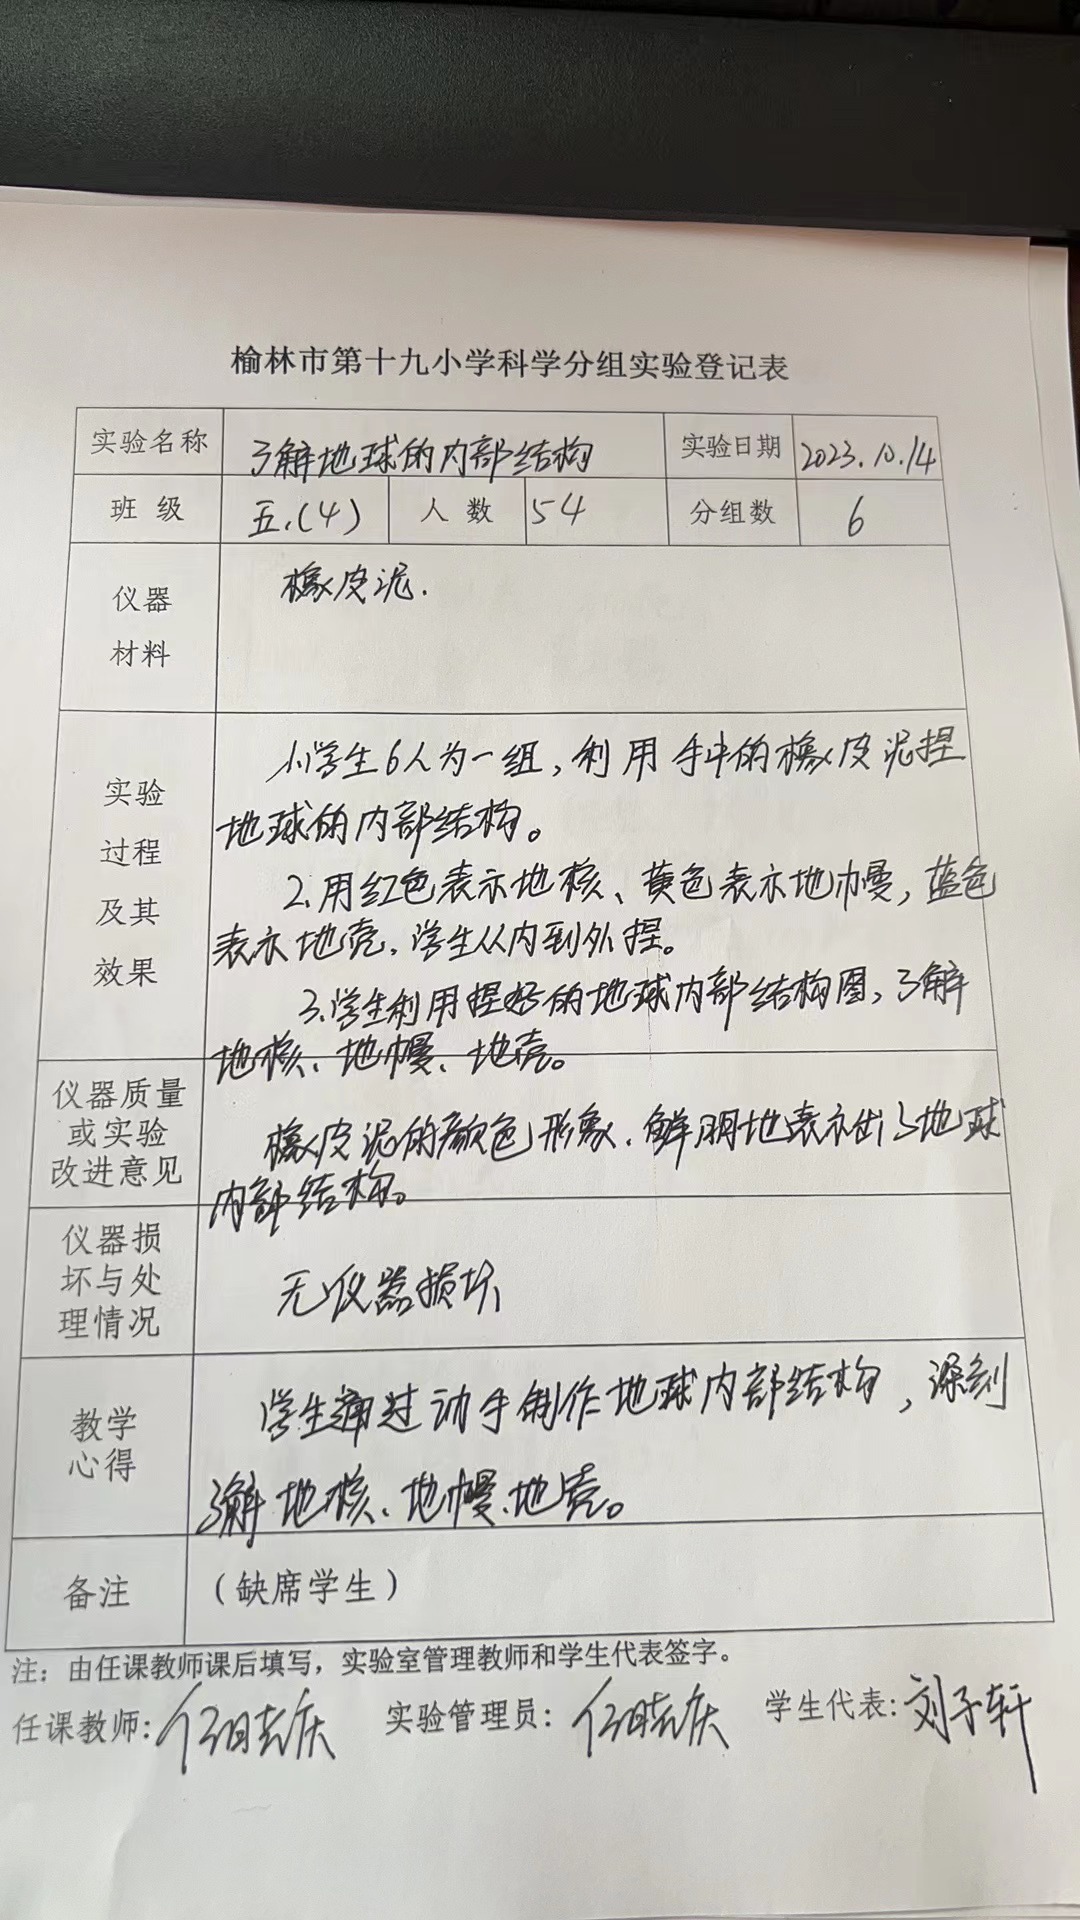 榆林市第十九小学科学分组实验登记表
实验名称 了解地球的内部结构 实验日期 2023.10.14
班 级 五.(4) 人 数 54 分组数 6
仪器
材料
橡皮泥.
实验
过程
及其
效果
1.学生6人为一组,利用手中的橡皮泥捏
地球的内部结构。
2.用红色表示地核、黄色表示地幔,蓝色
表示地壳,学生从内到外捏。
3.学生利用捏好的地球内部结构图,了解
地核、地幔、地壳。
仪器质量
或实验
改进意见
橡皮泥的颜色形象、鲜明地表示出了地球
内部结构。
仪器损
坏与处
理情况
无仪器损坏
教学
心得
学生通过动手制作地球内部结构,深刻
了解地核、地幔、地壳。
备注 (缺席学生)
注:由任课教师课后填写,实验室管理教师和学生代表签字。
任课教师: 实验管理员: 学生代表:刘子轩